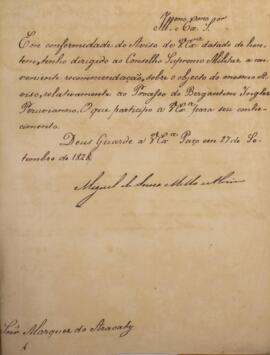 Illmo. Exmo. Snr.
Em conformidade do Aviso de V. Exa. datado de hon-
tem, tenho dirigido ao Conselho Supremo Militar a con-
veniente recommendação, sobre o objecto do mesmo A-
viso, relativamente ao Processo do Bergantim Inglez
Peruvianno. O que participo a V. Exa. para seu conhe-
cimento.
Deus Guarde a V. Exa. Paço em 27 de Se-
tembro de 1828.
Miguel de Souza Mello e Alvim
Snr. Marquez do Aracaty